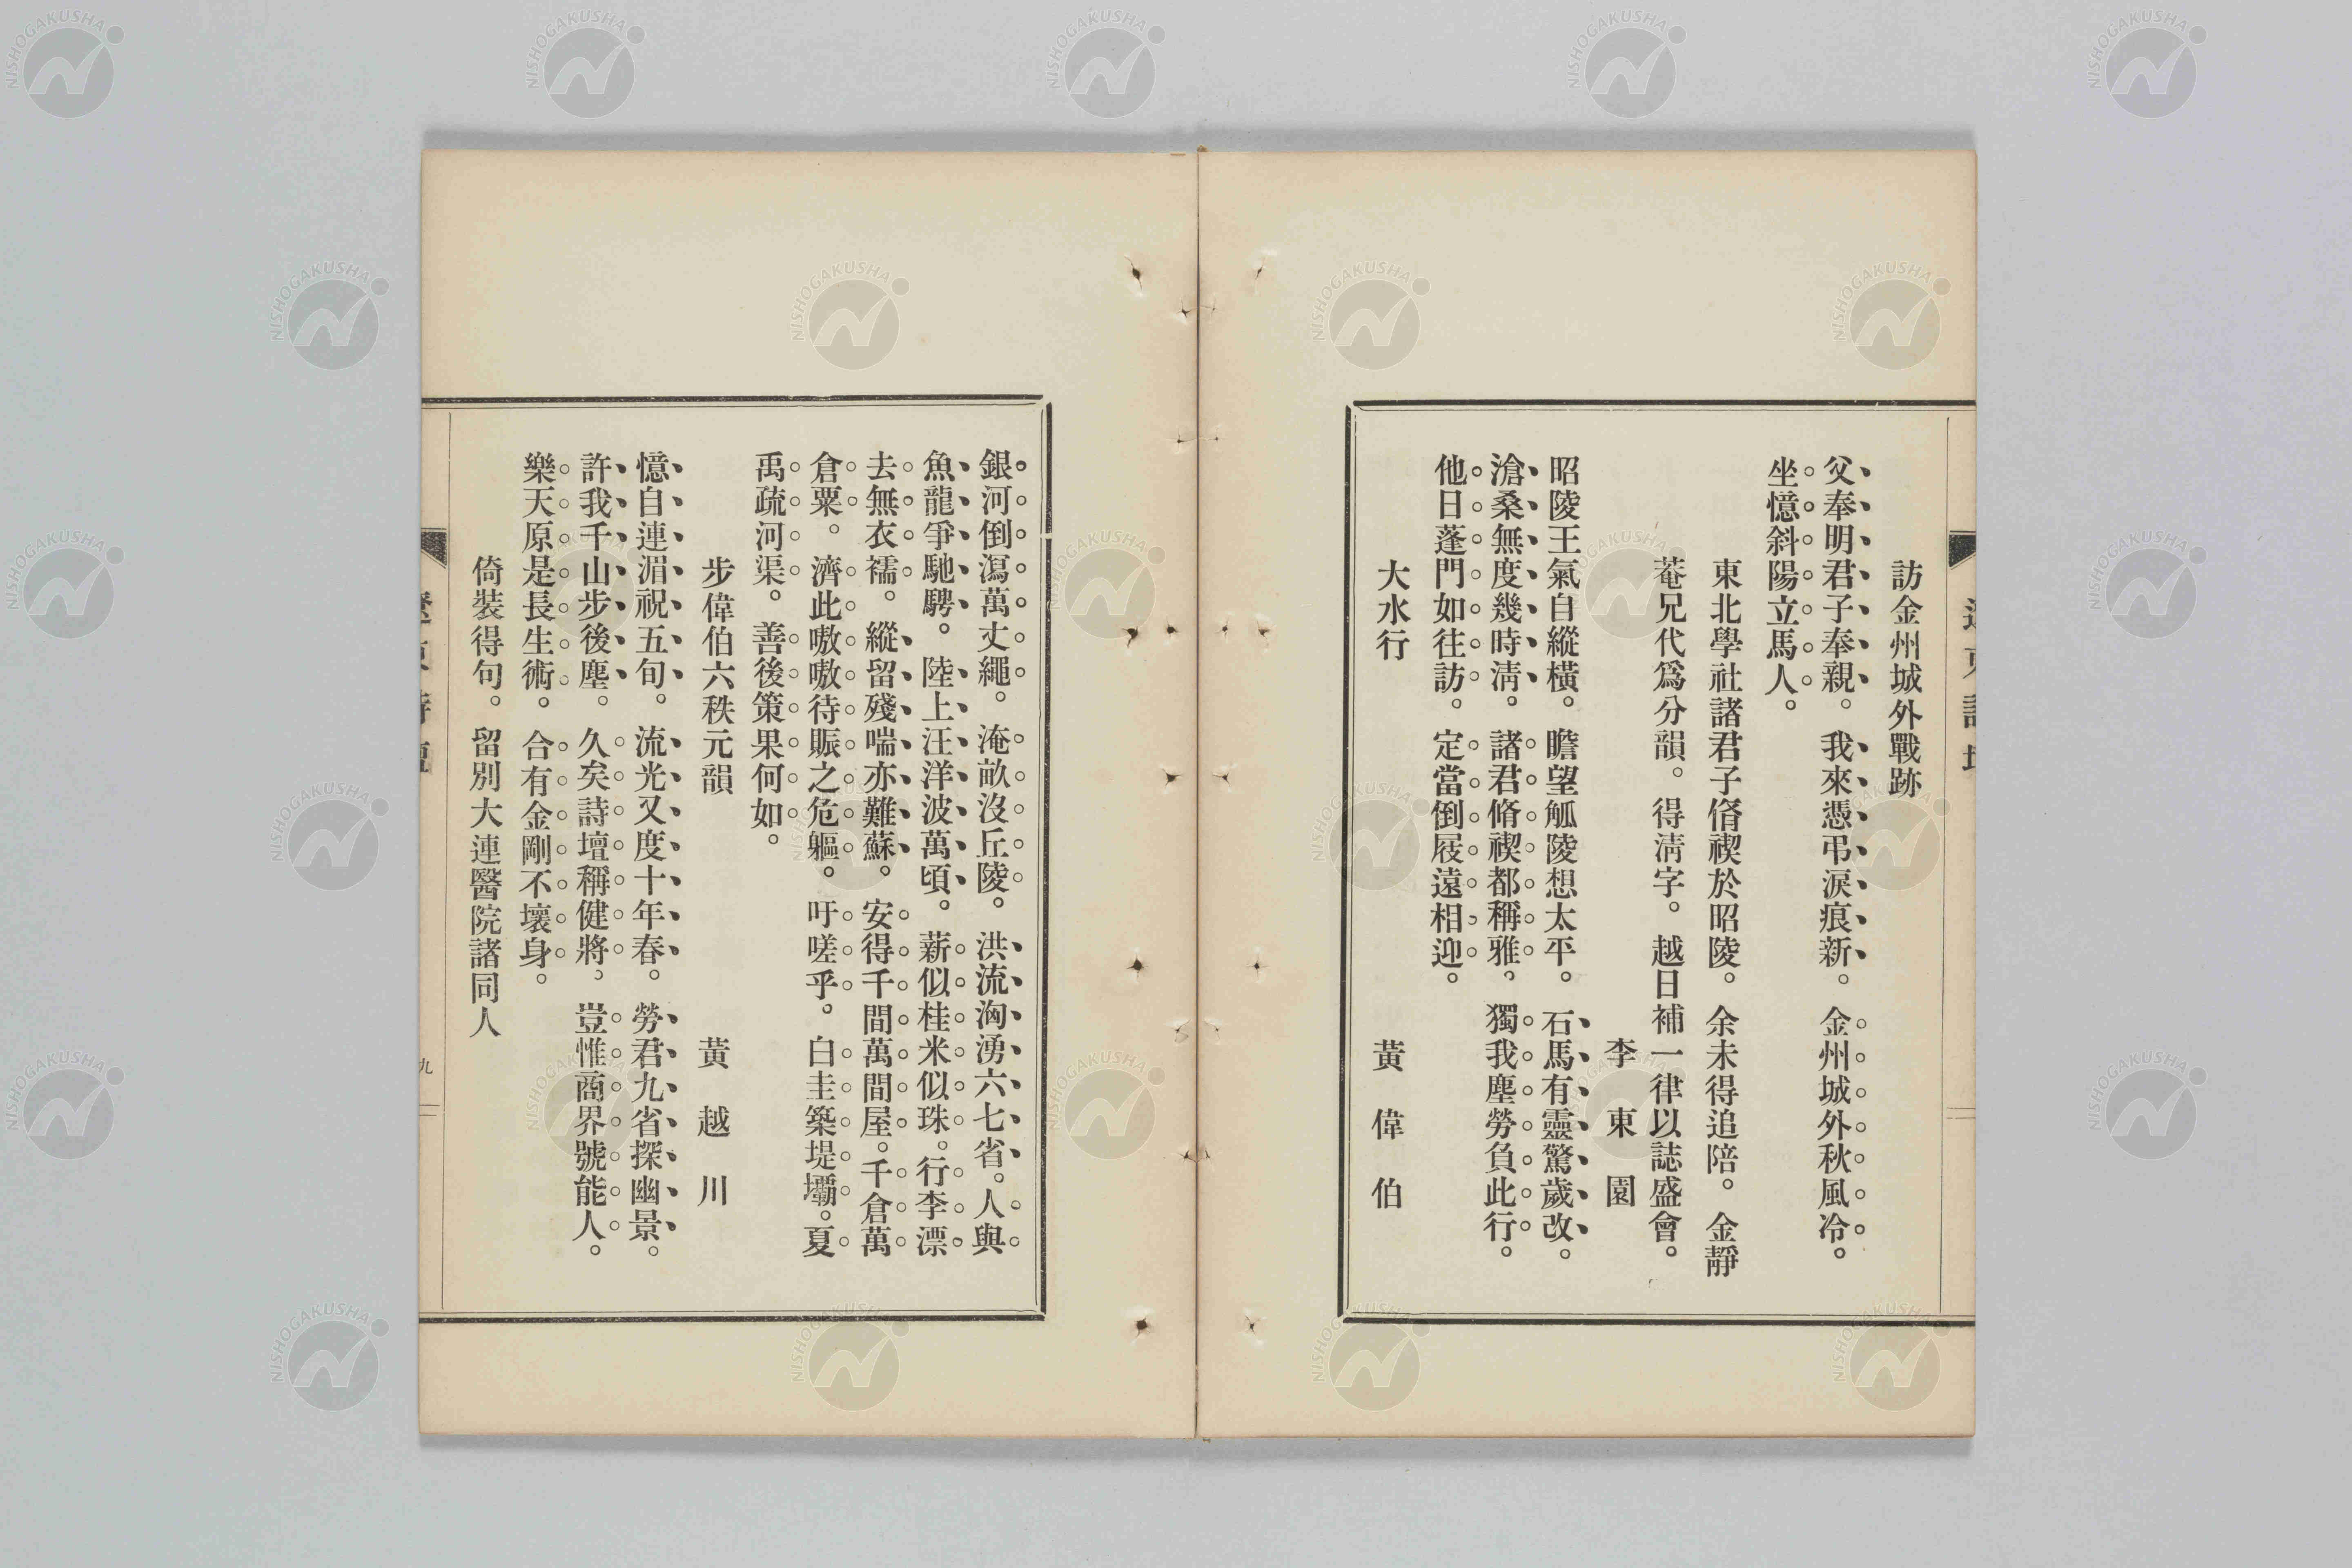 訪金州城外戰跡
父奉明君子奉親。我來憑弔淚痕新。金州城外秋風冷。
坐憶斜陽立馬人。
東北學社諸君子脩禊於昭陵。余未得追陪。金靜
菴兄代爲分韻。得淸字。越日補一律以誌盛會。
李東園
昭陵王氣自縱橫。瞻望觚陵想太平。石馬有靈驚歲改。
滄桑無度幾時淸。諸君脩禊都稱雅。獨我塵勞負此行。
他日蓬門如往訪。定當倒屐遠相迎。
大水行 黃偉伯
銀河倒瀉萬丈繩。淹畝沒丘陵。洪流洶湧六七省。人與
魚龍爭馳騁。陸上汪洋波萬頃。薪似桂米似珠。行李漂
去無衣襦。縱留殘喘亦難蘇。安得千間萬間屋。千倉萬
倉粟。濟此嗷嗷待賑之危軀。吁嗟乎。白圭築堤壩。夏
禹疏河渠。善後策果何如。
步偉伯六秩元韻 黃越川
憶自連湄祝五旬。流光又度十年春。勞君九省探幽景。
許我千山步後塵。久矣詩壇稱健將。豈惟商界號能人。
樂天原是長生術。合有金剛不壞身。
倚裝得句。留別大連醫院諸同人
九
NISHOGAKUSHA